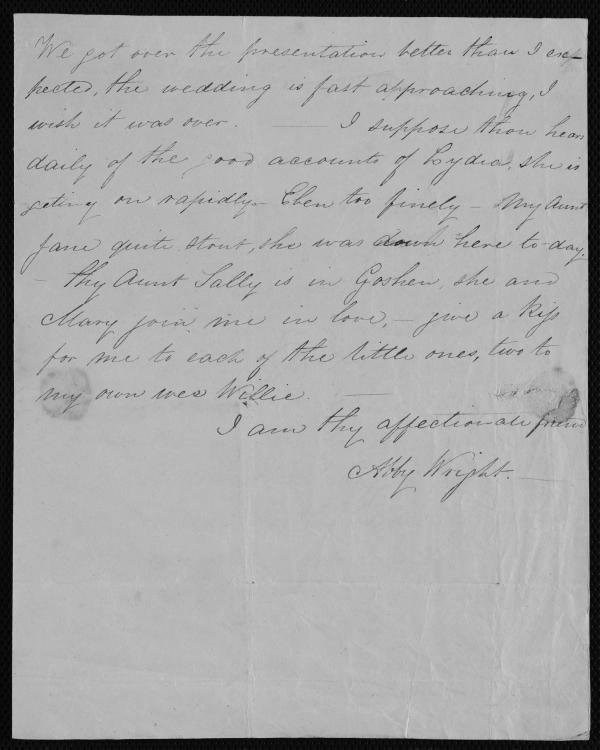 We got over the presentation better than I ex-
pected, the wedding is fast approaching, I
wish it was over. — I suppose thou hears
daily of the good accounts of Lydia, she is
geting on rapidly – Eben too finely – My Aunt
Jane quite stout, she was down here to-day.
– Thy Aunt Sally is in Goshen, she and
Mary join me in love, – give a kiss
for me to each of the little ones, two to
my own wee Willie. —
I am thy affectionate friend
Abby Wright. —